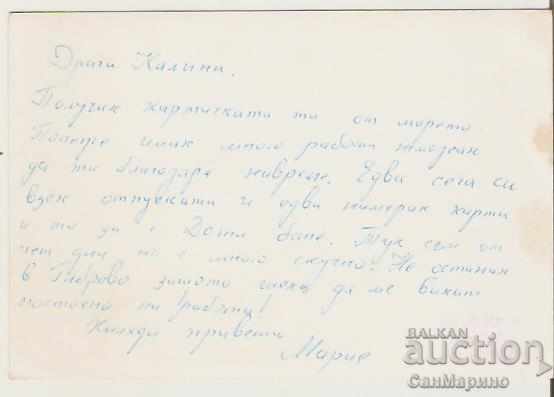 Драги Калина,
Получих картичката ти от морето.
Понеже имах много работа
да ти благодаря навреме. Едва сега си
взех отпуската и едва намерих карти
и то да с баня. Тук съм от
пет дни но е много скучно. Не останах
в Габрово защото щяха да ме викат
постоянно на работа!
Хиляди приветы
Марио
БАЛКАН
auction
СанМарино